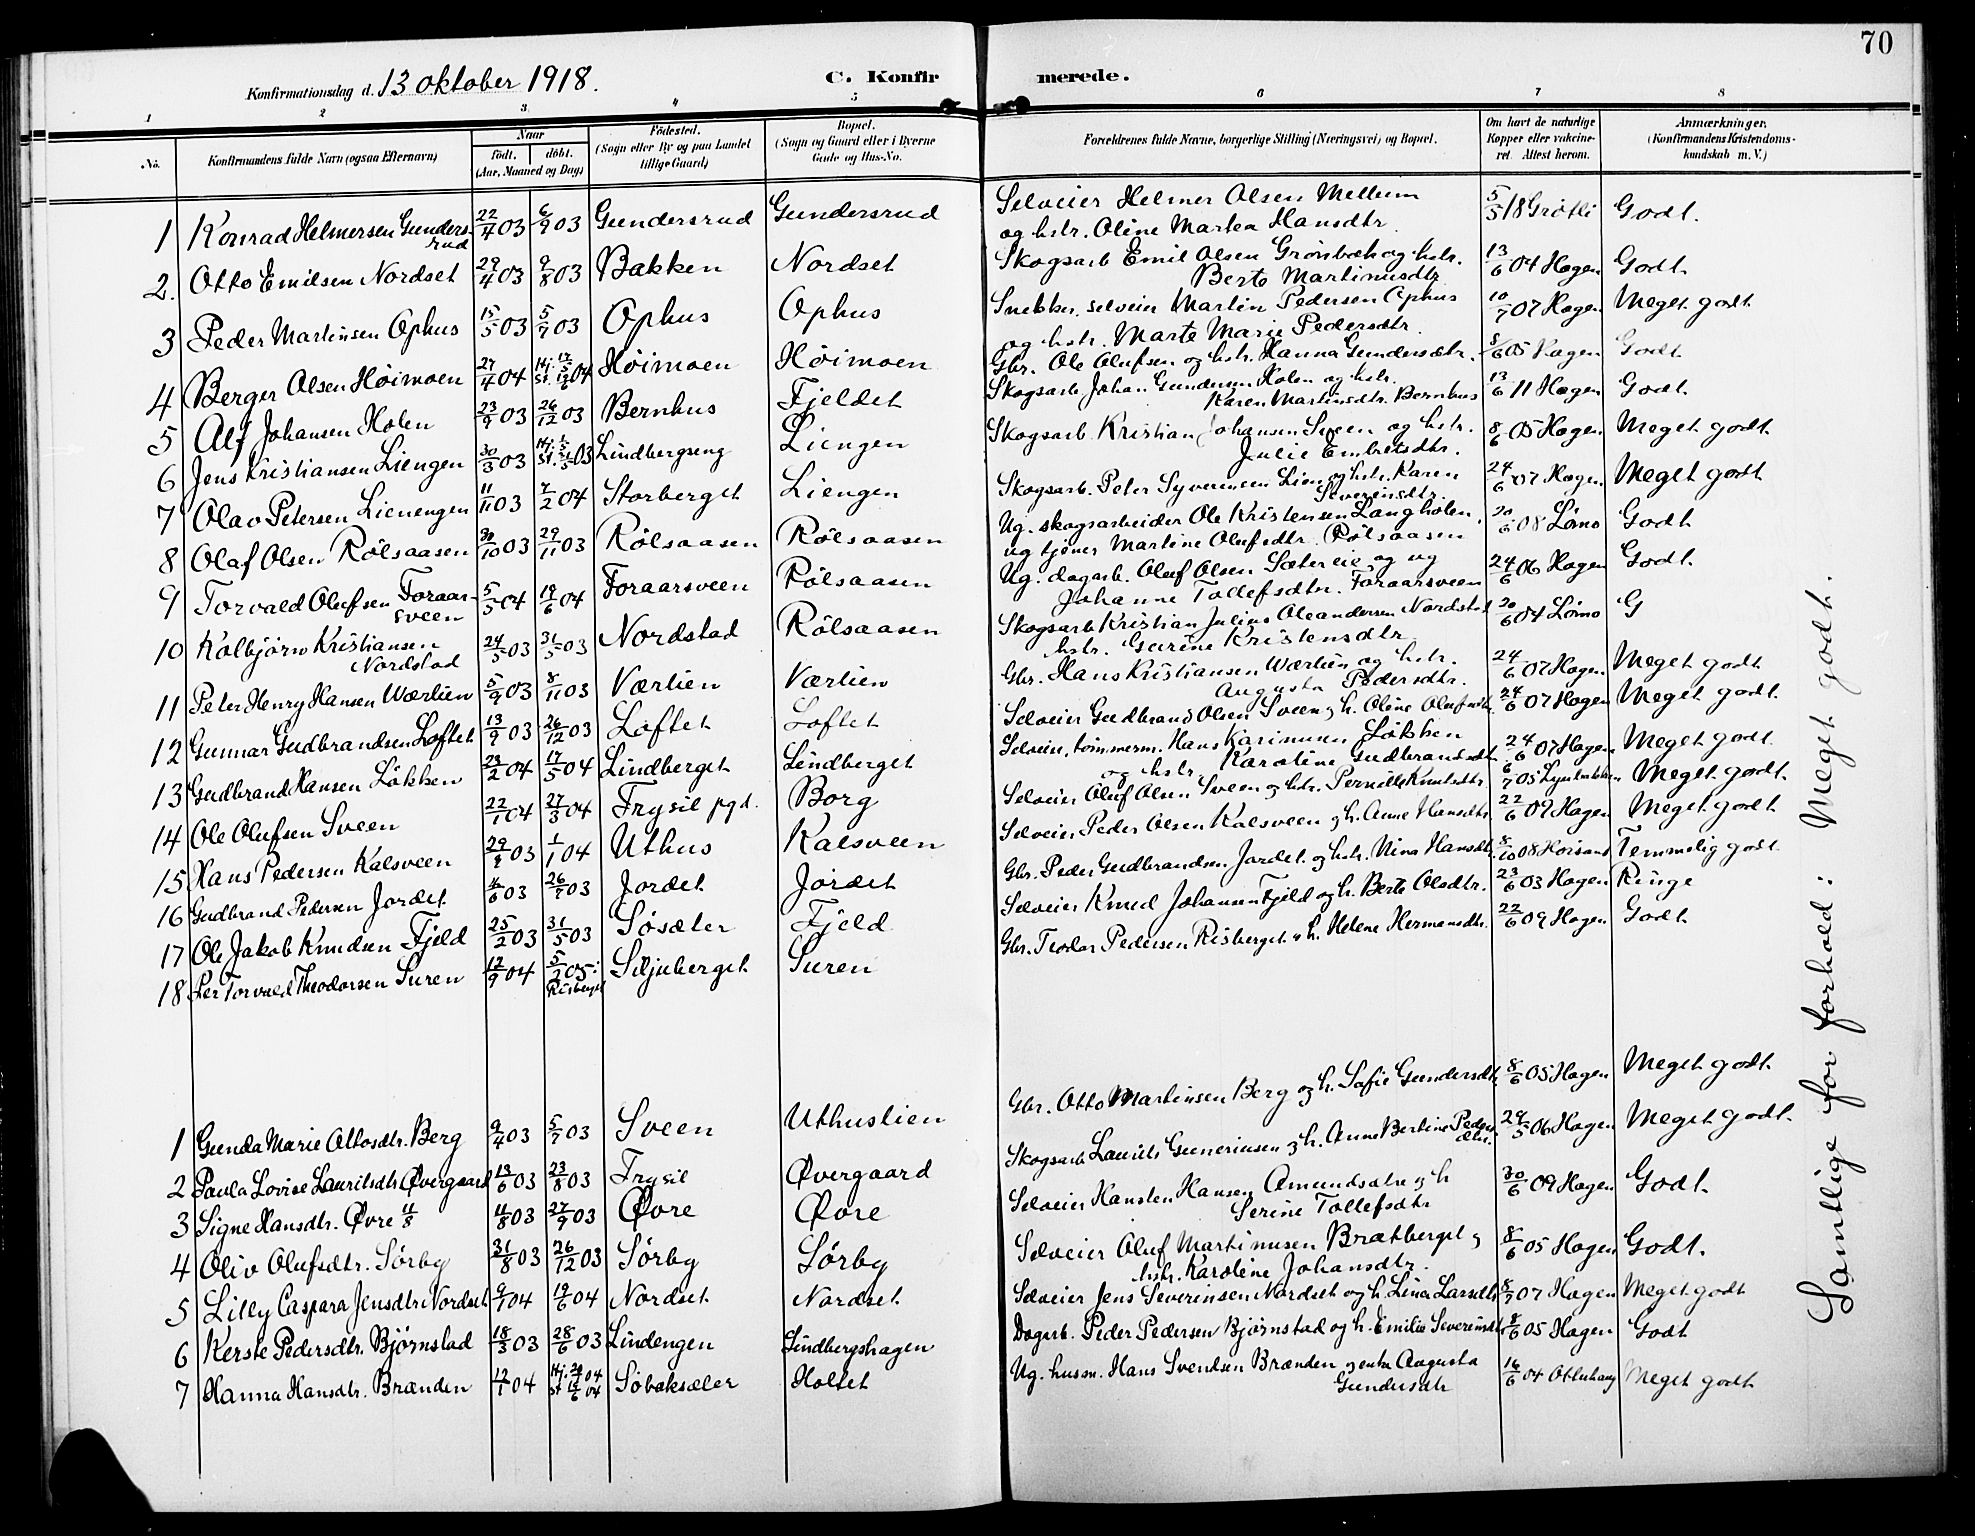 70
Konfirmationsdag d. 13 oktober 1918.
C. Konfir merede.
1 2 3 4 5 6 7 8
No.
Konfirmandens fulde Navn (ogsaa Efternavn)
Naar
födt. döbt.
(Aar, Maaned og Dag)
Födested.
(Sogn eller By og paa Landet
tillige Gaard)
Bopæl.
(Sogn og Gaard eller i Byerne
Gade og Hus-No.
Forældrenes fulde Navne, borgerlige Stilling (Næringsvei) og Bopæl.
Om havt de naturlige
Kopper eller vaccine-
ret. Attest herom.
Anmærkninger.
(Konfirmandens Kristendoms-
kundskab m. V.)
1 Konrad Helmersen Gunders-rud 22/4 03 6/9 03 Gundersrud Gundersrud Selveier Helmer Olsen Mellum
og hstr. Oline Martea Hansdtr. 5/5 18 Grøtli Godt.
2. Otto Emilsen Nordset 29/4 03 9/8 03 Bakken Nordset Skogsarb Emil Olsen Grønbæk og hstr.
Berte Martinusdtr 13/6 04 Hagen Godt.
3 Peder Martinsen Ophus 15/5 03 5/7 03 Ophus Ophus Snekker, selveier Martin Pedersen Ophus
og hstr. Marte Marie Pedersdtr. 10/7 07 Hagen Meget godt
4 Berger Olsen Høimoen 27/4 04 Hj. 17/5 St. 19/6 04 Høimoen Høimoen Gbr. Ole Olufsen og hstr. Hanna Gundersdtr. 8/6 05 Hagen Godt
5 Alf Johansen Holen 23/9 03 26/12 03 Bernhus Fjeldet Skogsarb Johan Gundersen Holen og hstr.
Karen Martinsdtr. Bernhus 13/6 11 Hagen Godt
6 Jens Kristiansen Liengen 30/3 03 Lindbergseng Liengen Skogsarb. Kristian Johansen Sveen og hstr.
Julie Embretsdtr. 8/6 05 Hagen Meget godt.
7 Olav Petersen Lienengen 11/11 03 7/2 04 Storberget Liengen Skogsarb. Peter Syversen Lien og hstr. Karen
Severinsdtr. 24/6 07 Hagen Meget godt
8 Olaf Olsen Rølsaasen 30/10 03 29/11 03 Rølsaasen Rølsaasen Ug. skogsarbeider Ole Kristensen Langholen,
ug tjener Martine Olufsdtr. Rølsaasen 20/6 08 Lømo Godt
9 Torvald Olufsen Foraar-sveen 5/5 04 19/6 04 Foraarsveen Rølsaasen Ug. dagarb. Oluf Olsen Sætereie og ug
Johanne Tollefsdtr. Foraarsveen 24/6 06 Hagen Godt.
10 Kolbjørn Kristiansen
Nordstad 24/5 03 31/5 03 Nordstad Rølsaasen Skogsarb Kristian Julius Oleandersen Nordstad
hstr. Gurine Kristensdtr 20/6 04 Lømo G
11 Peter Henry Hansen Wærlien 5/9 03 8/11 03 Værlien Værlien Gbr. Hans Kristiansen Wærlien og hstr.
Augusta Pedersdtr. 24/6 07 Hagen Meget godt
12 Gunnar Gudbrandsen Loftet 13/9 03 26/12 03 Loftet Loftet Selveier Gudbrand Olsen Sveen og h. Oline Olufsdtr. 24/6 07 Hagen Meget godt.
13 Gudbrand Hansen Løkken 23/2 04 17/5 04 Lindberget Lindberget Selveier, tømmerm. Hans Karinusen Løkken
og hstr. Karoline Gudbrandsdtr 24/6 07 Hagen Meget godt
14 Ole Olufsen Sveen 22/1 04 27/3 04 Trysil pgd. Borg Selveier Oluf Olsen Sveen og hstr. Pernille Knutsdtr. 6/7 05 Meget godt.
15 Hans Pedersen Kalsveen 29/9 03 1/1 04 Uthus Kalsveen Selveier Peder Olsen Kalsveen og h. Anne Hansdtr. 22/6 09 Hagen Meget godt
16 Gudbrand Pedersen Jordet 03 26/7 03 Jordet Jordet Gbr. Peder Gudbrandsen Jordet og hstr. Nina Hansdtr. 8/10 08 Temmelig godt
17 Ole Jakob Knudsen Fjeld 25/2 03 31/5 03 Søsæter Fjeld Selveier Knud Johansen Fjeld og h. Berte Olsdtr. 23/6 03 Hagen Ringe
18 Per Torvald Theodorsen Suren 12/9 04 5/2 05 i Risberget Siljuberget Suren Gbr. Teodor Pedersen Risberget og h. Helene Hermansdtr. 22/6 09 Hagen Godt
1 Gunda Marie Ottosdtr. Berg 9/4 03 5/7 03 Sveen Uthuslien Gbr. Otto Martinsen Berg og h. Sofie Gundersdtr 8/6 05 Hagen Meget godt.
2 Paula Lovise Lauritsdtr. Øvergaard 13/6 03 23/8 03 Trysil Øvergaard Skogsarb Laurits Gunneriusen og h. Anne Bertine Peders
dtr. 24/5 06 Hagen Meget godt.
3 Signe Hansdtr. Øvre 11/8 11/8 03 27/9 03 Øvre Øvre Selveier Karsten Hansen Amundsdtre og h
Serine Tollefsdtr 30/6 09 Hagen Godt.
4 Oliv Olufsdtr. Sørby 31/8 03 26/12 03 Sørby Sørby Selveier Oluf Martinusen Brætberget og
hstr. Karoline Johansdtr. 8/6 05 Hagen Godt.
5 Lilly Caspara Jensdtr. Nordset 9/1 04 19/6 04 Nordset Nordset Selveier Jens Severinsen Nordset og h. Lina Larsdtr 8/7 07 Hagen Meget godt
6 Kerste Pedersdtr. Bjørnstad 18/3 03 28/6 03 Lindengen Lindbergshagen Dagarb. Peder Pedersen Bjørnstad og h. Emilie Severinsdtr. 8/6 05 Hagen Godt
7 Hanna Hansdtr. Brænden 12/1 04 Hj. 24/1 04 St. 19/6 04 Søbæksæter Holtet Ug. husm. Hans Svendsen Brænden og enke Augusta
Gundersdtr 16/6 04 Meget godt
Samtlige for forhold: Meget godt.